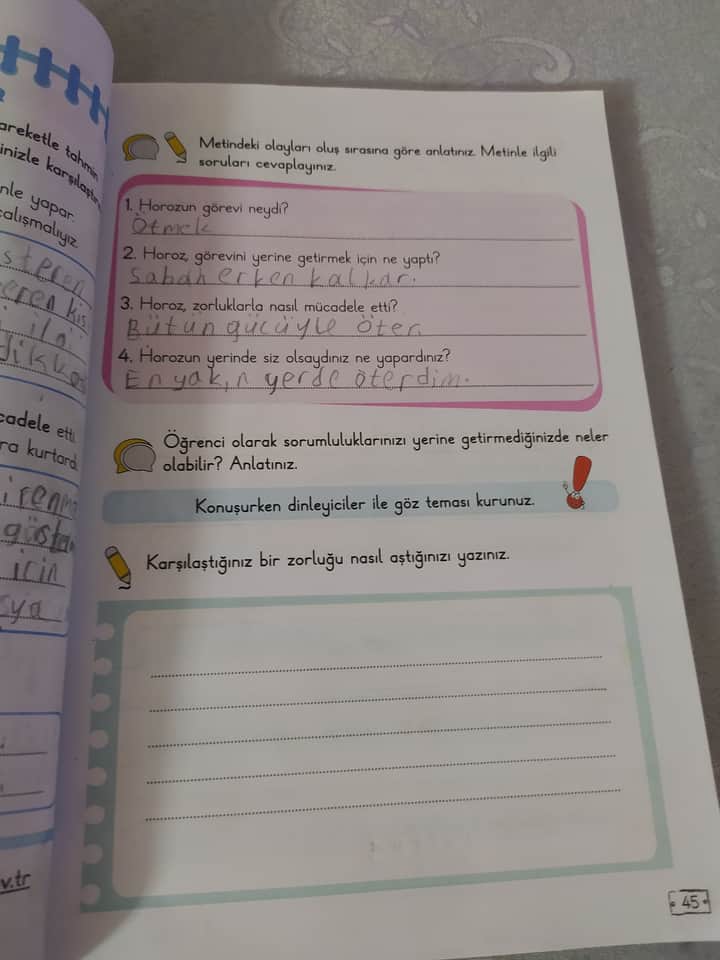 ?
areketle tahmin
inizle karşılaştırı
nle yapar.
çalışmalıyız.
steren
eren kiş
i ilgi
dikkat
cadele etti.
ra kurtardı.
irenme
göster
için
sya
v.tr
Metindeki olayları oluş sırasına göre anlatınız. Metinle ilgili
soruları cevaplayınız.
1. Horozun görevi neydi?
Ötmek
2. Horoz, görevini yerine getirmek için ne yaptı?
Sabah erken kalkar.
3. Horoz, zorluklarla nasıl mücadele etti?
Bütün gücüyle Öter
4. Horozun yerinde siz olsaydınız ne yapardınız?
En yakın yerde öterdim.
Öğrenci olarak sorumluluklarınızı yerine getirmediğinizde neler
olabilir? Anlatınız.
Konuşurken dinleyiciler ile göz teması kurunuz.
Karşılaştığınız bir zorluğu nasıl aştığınızı yazınız.
45